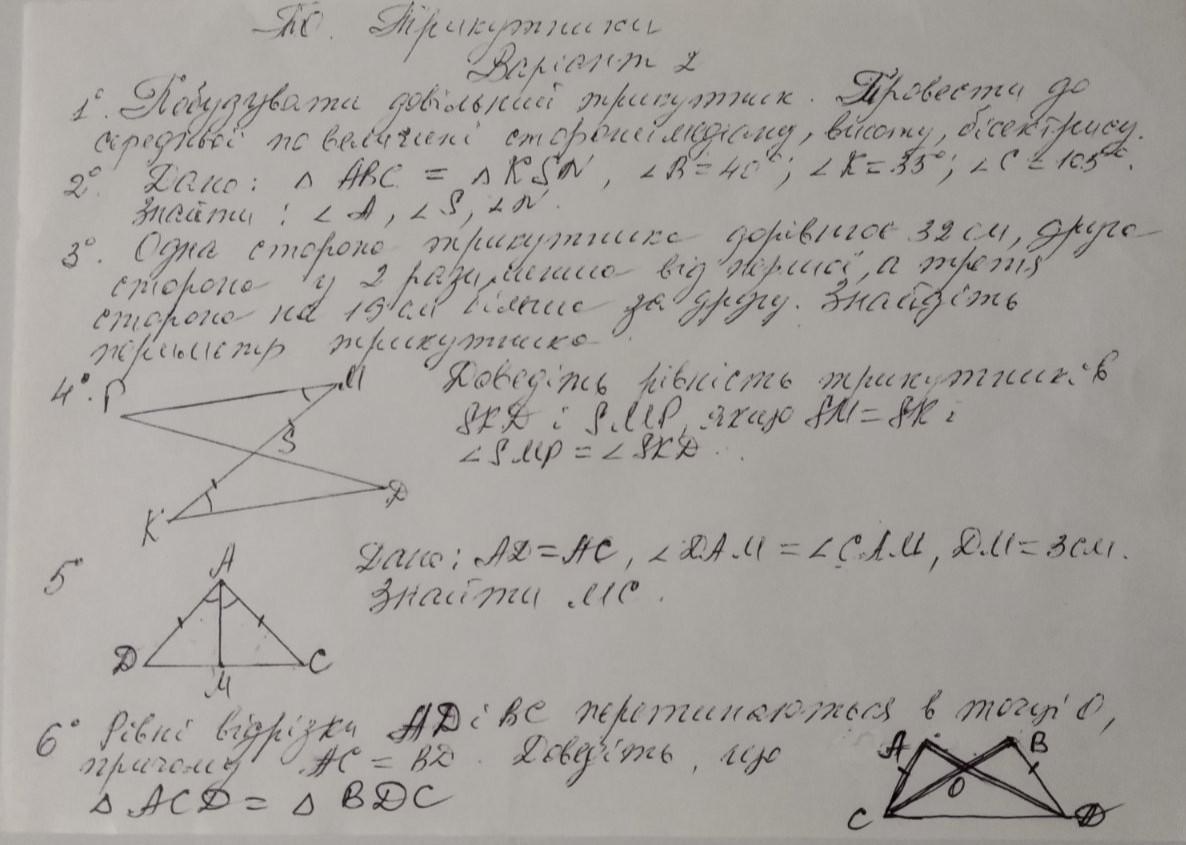 ТО. Трикутники
Варіант 2
1°. Побудувати довільний трикутник. Провести до
середньої по величині сторони медіану, висоту, бісектрису.
2° Дано: △ ABC = △ KSN, ∠B = 40°; ∠K = 35°; ∠C = 105°.
Знайти: ∠A, ∠S, ∠N.
3°. Одна сторона трикутника дорівнює 32 см, друга
сторона у 2 рази менша від першої, а третя
сторона на 19 см більша за другу. Знайдіть
периметр трикутника.
4°. P M Доведіть рівність трикутників
S SKD і SMP, якщо SM = SK і
∠SMP = ∠SKD.
K D
5° A Дано: AD = AC, ∠DAM = ∠CAM, DM = 3 см.
Знайти MC.
D M C
6° Рівні відрізки AD і BC перетинаються в точці O,
причому AC = BD. Доведіть, що
△ ACD = △ BDC
A B
O
C D